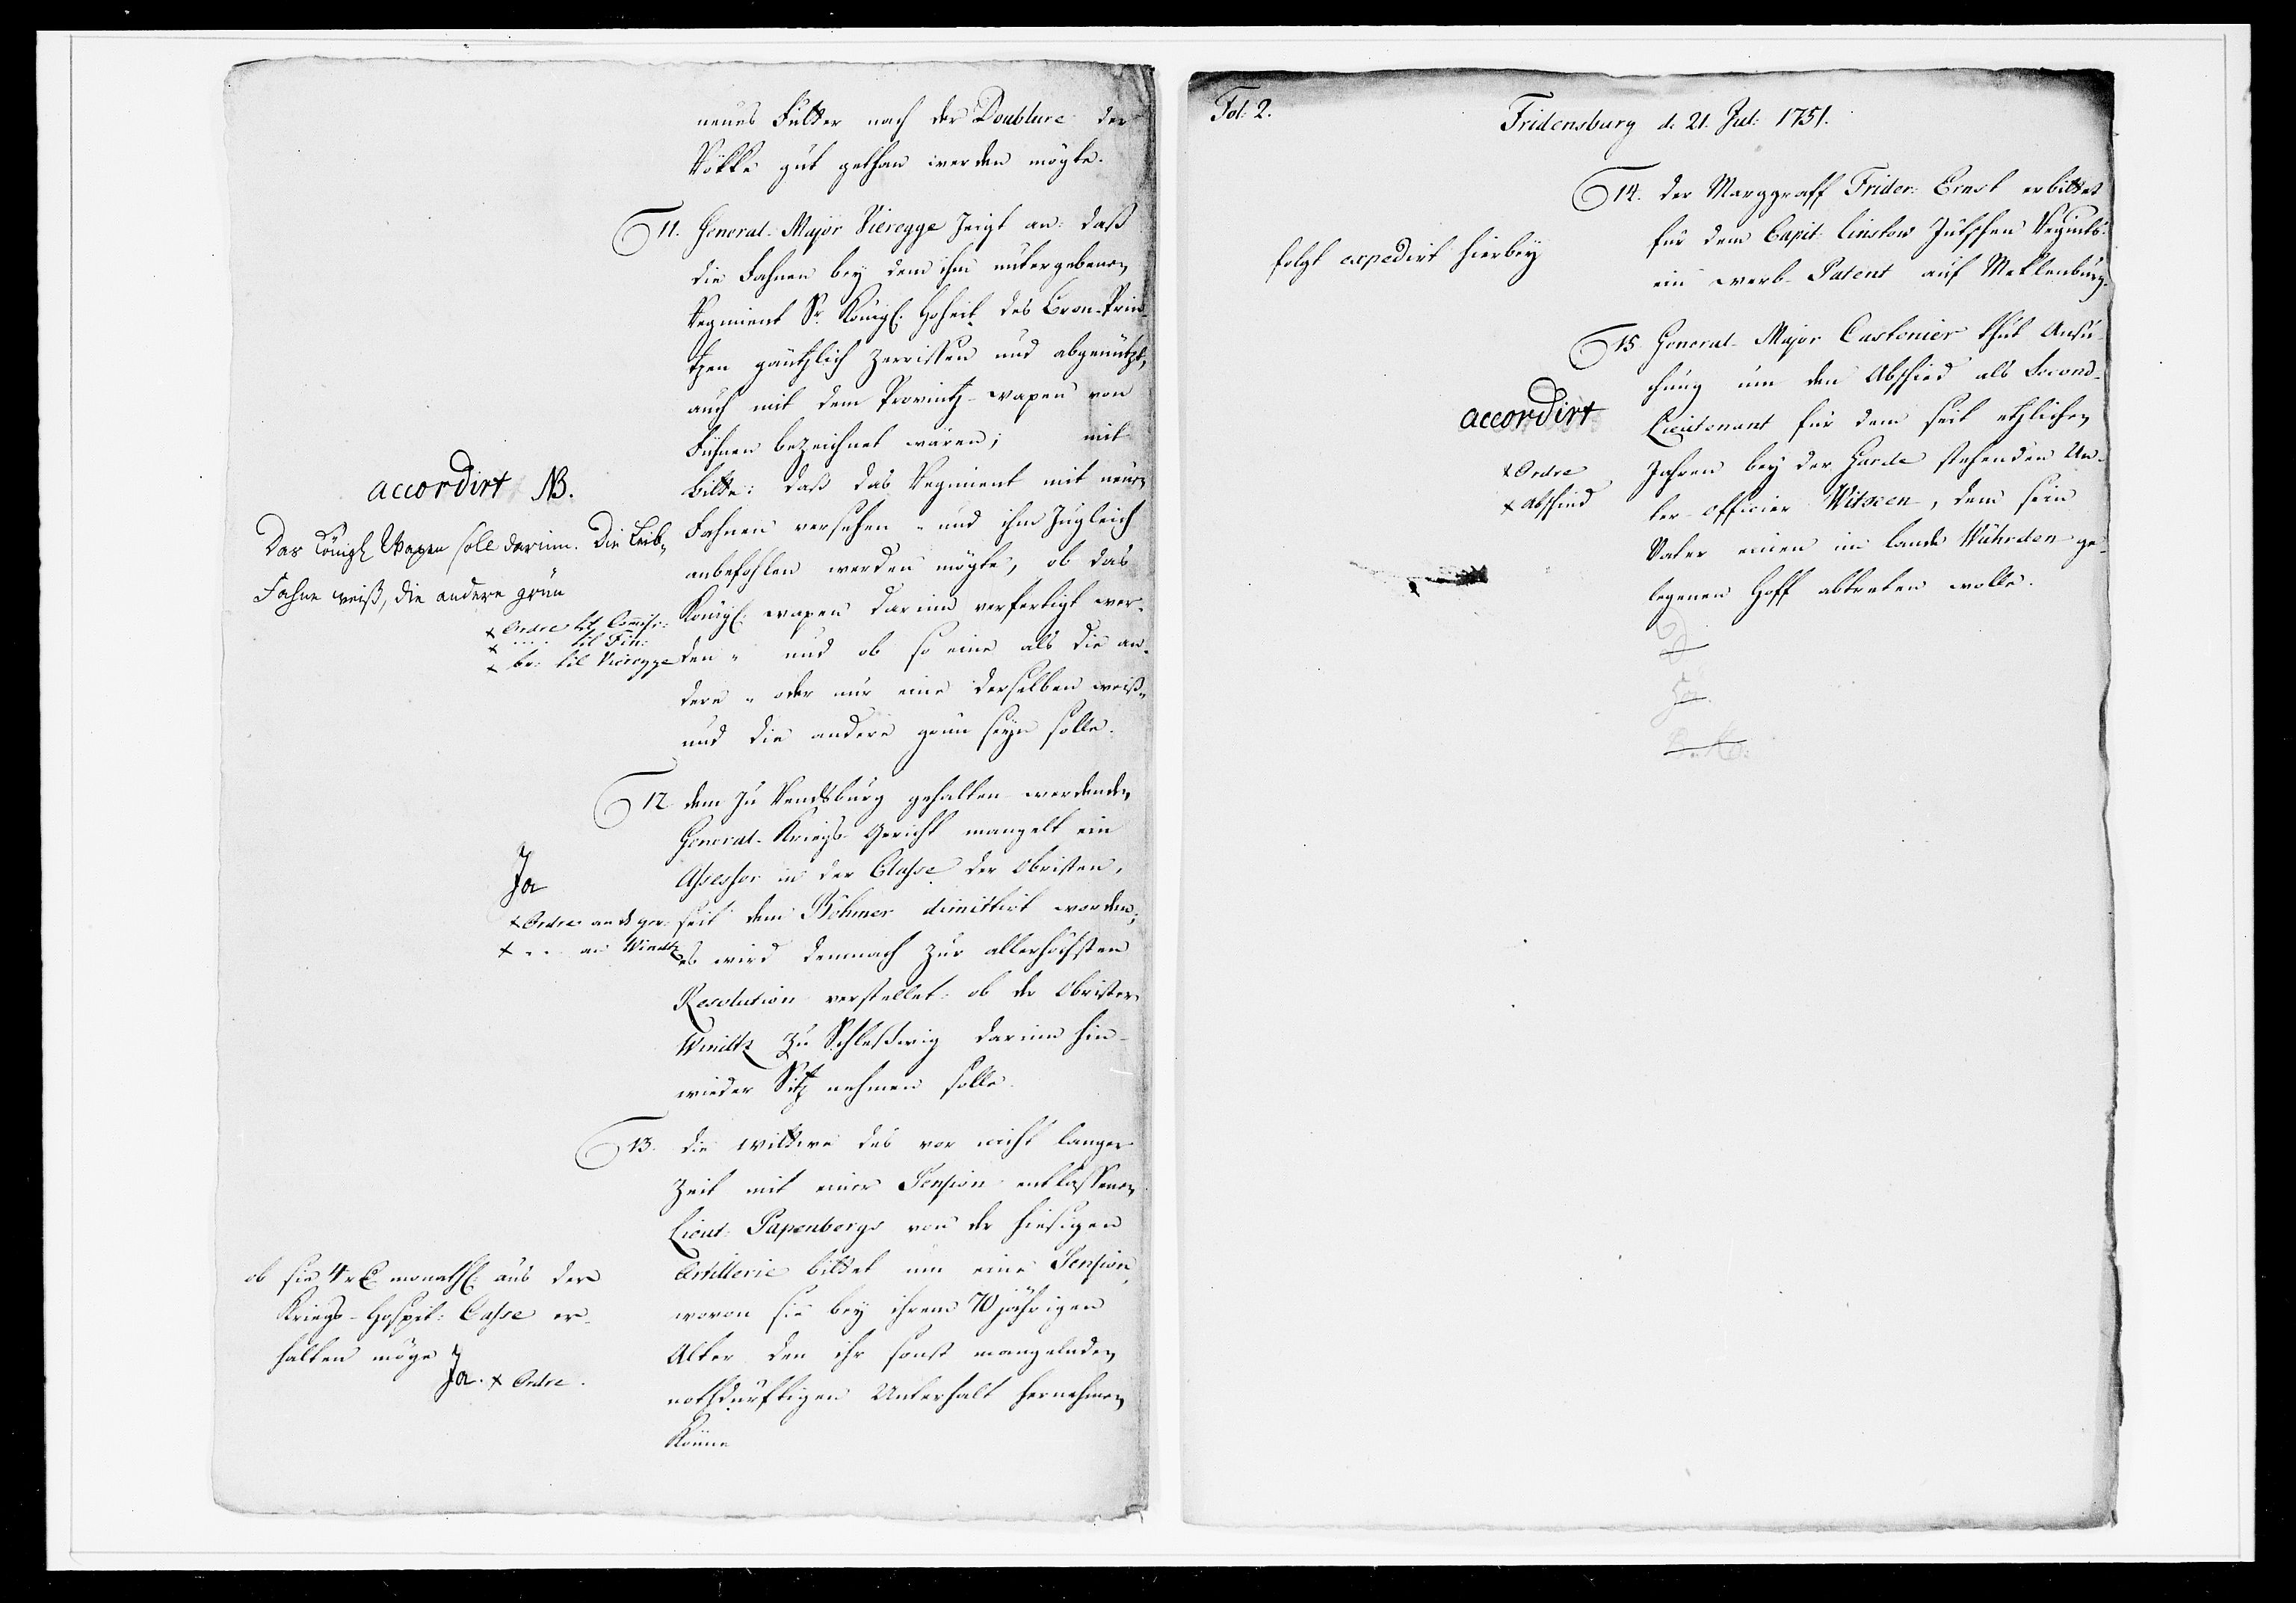 neues Futter nach der Doublure der
Rökke gut gethan werden mögte.
11. General-Major Vieregge zeigt an: daß
die Fahnen bey dem ihm untergebenen
Regiment Sr. Königl. Hoheit des Cron-Prin-
tzen gäntzlich zerrissen und abgenützt,
auch mit dem Provintz-wapen von
Fühnen bezeichnet wären; mit
Bitte: daß das Regiment mit neuen
Fahnen versehen - und ihm zugleich
anbefohlen werden mögte, ob das
Königl. wapen darinn verfertigt wer-
den - und ob so eine als die an-
dere - oder nur eine derselben weiß-
und die andere grün seyn solle.
accordirt NB.
Das Königl Wapen solle darinn. Die Leib-
Fahne weiß, die andere grün
x Ordre til Commiss:
x .... til Fin:
x br: til Vieregge
12. dem zu Rendsburg gehalten werdenden
General-Kriegs-Gericht mangelt ein
Assessor in der Classe der Obristen,
seit dem Böhmer dimittirt worden;
es wird demnach zur allerhöchsten
Resolution verstellet: ob der Obrister
Winiltz zu Schleßwig darinn hin-
wieder Sitz nehmen solle.
Ja
x Ordre an ds ger:
x ... an Winiltz
13. die wittwe des vor nicht langer
Zeit mit einer Pension entlassenen
Lieut. Papenbergs von der hiesigen
Artillerie bittet um eine Pension,
wovon sie bey ihrem 70 jährigen
Alter den ihr sonst mangelnden
nothdürftigen Unterhalt hernehmen
könne
ob sie 4 r C. monathl: aus der
Kriegs-Hospit: Casse er-
halten möge
Ja. x Ordre.
Fol: 2.
Fridensburg d. 21. Jul: 1751.
14. der Marggraff Frider: Ernst erbittet
für dem Capit. Linstow Jütschen Regimts:
ein werb-Patent auf Meklenburg.
folgt expedirt hierbey
15. General-Major Castonier thut Ansu-
chung um den Abschied als Second-
Lieutenant für dem seit etzlichen
Jahren bey der Garde stehenden Un-
ter-Officier Witscen, dem sein
Vater einen im lande Wührden ge-
legenen Hoff abtreten wolle.
accordirt
x Ordre
x Abschied